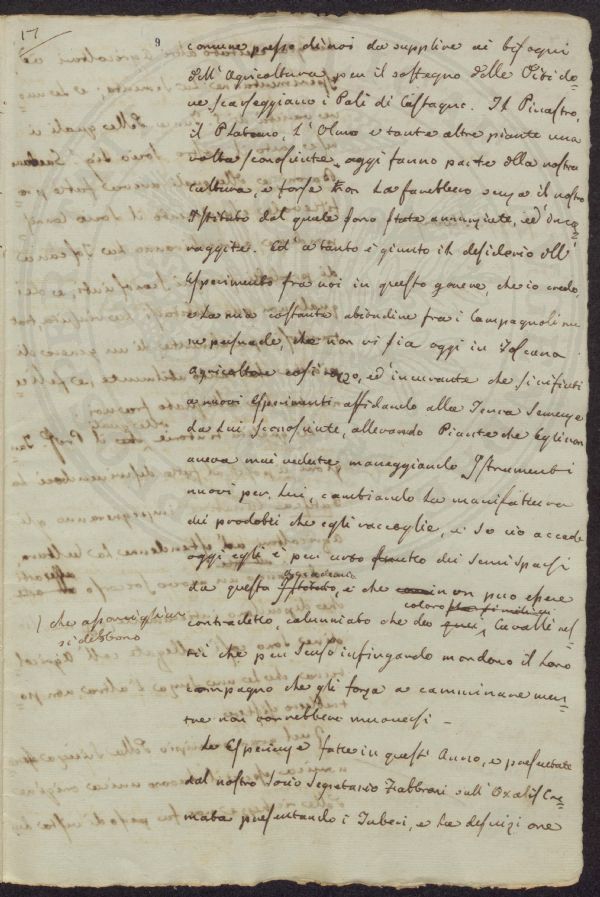 17
9
comune presso di noi da supplire ai bisogni
dell' Agricoltura, per il sostegno delle Viti do=
ve scarseggiano i Pali di Castagno. Il Pinastro,
il Platano, L' Olmo e tante altre piante una
volta sconosciute, oggi fanno parte della nostra
cultura, e forse non La farebbero senza il nostro
Istituto dal quale sono state annunziate, ed inco=
raggite. Ed a tanto è giunto il desiderio dell'
Esperimento fra noi in questo genere, che io credo,
e La mia costante abitudine fra i Campagnoli me
ne persuade, che non vi sia oggi in Toscana
Agricoltore così rozzo, ed incurante che si rifiuti
a nuovi Esperimenti affidando alla Terra Semenze
da Lui sconosciute, allevando Piante che Egli non
aveva mai vedute maneggiando Istrumenti
nuovi per Lui, cambiando La manifattura
dei prodotti che egli raccoglie, e se ciò accade
oggi egli è per certo frutto dei semi sparsi
da questa Istituto, e che non può essere
Accademia
contradetto, calunniato che da quei Cavalli re=
coloro
/ che assomigliar
si debbono
stii che per senso infingardo mordono il Loro
compagno che gli forza a camminare men=
tre non vorrebbero muoversi –
Le Esperienze fatte in questi Anno, e presentate
dal nostro Socio Segretario Fabbroni sull' Oxalis Cre=
nata presentando i Tuberi, e La descrizione